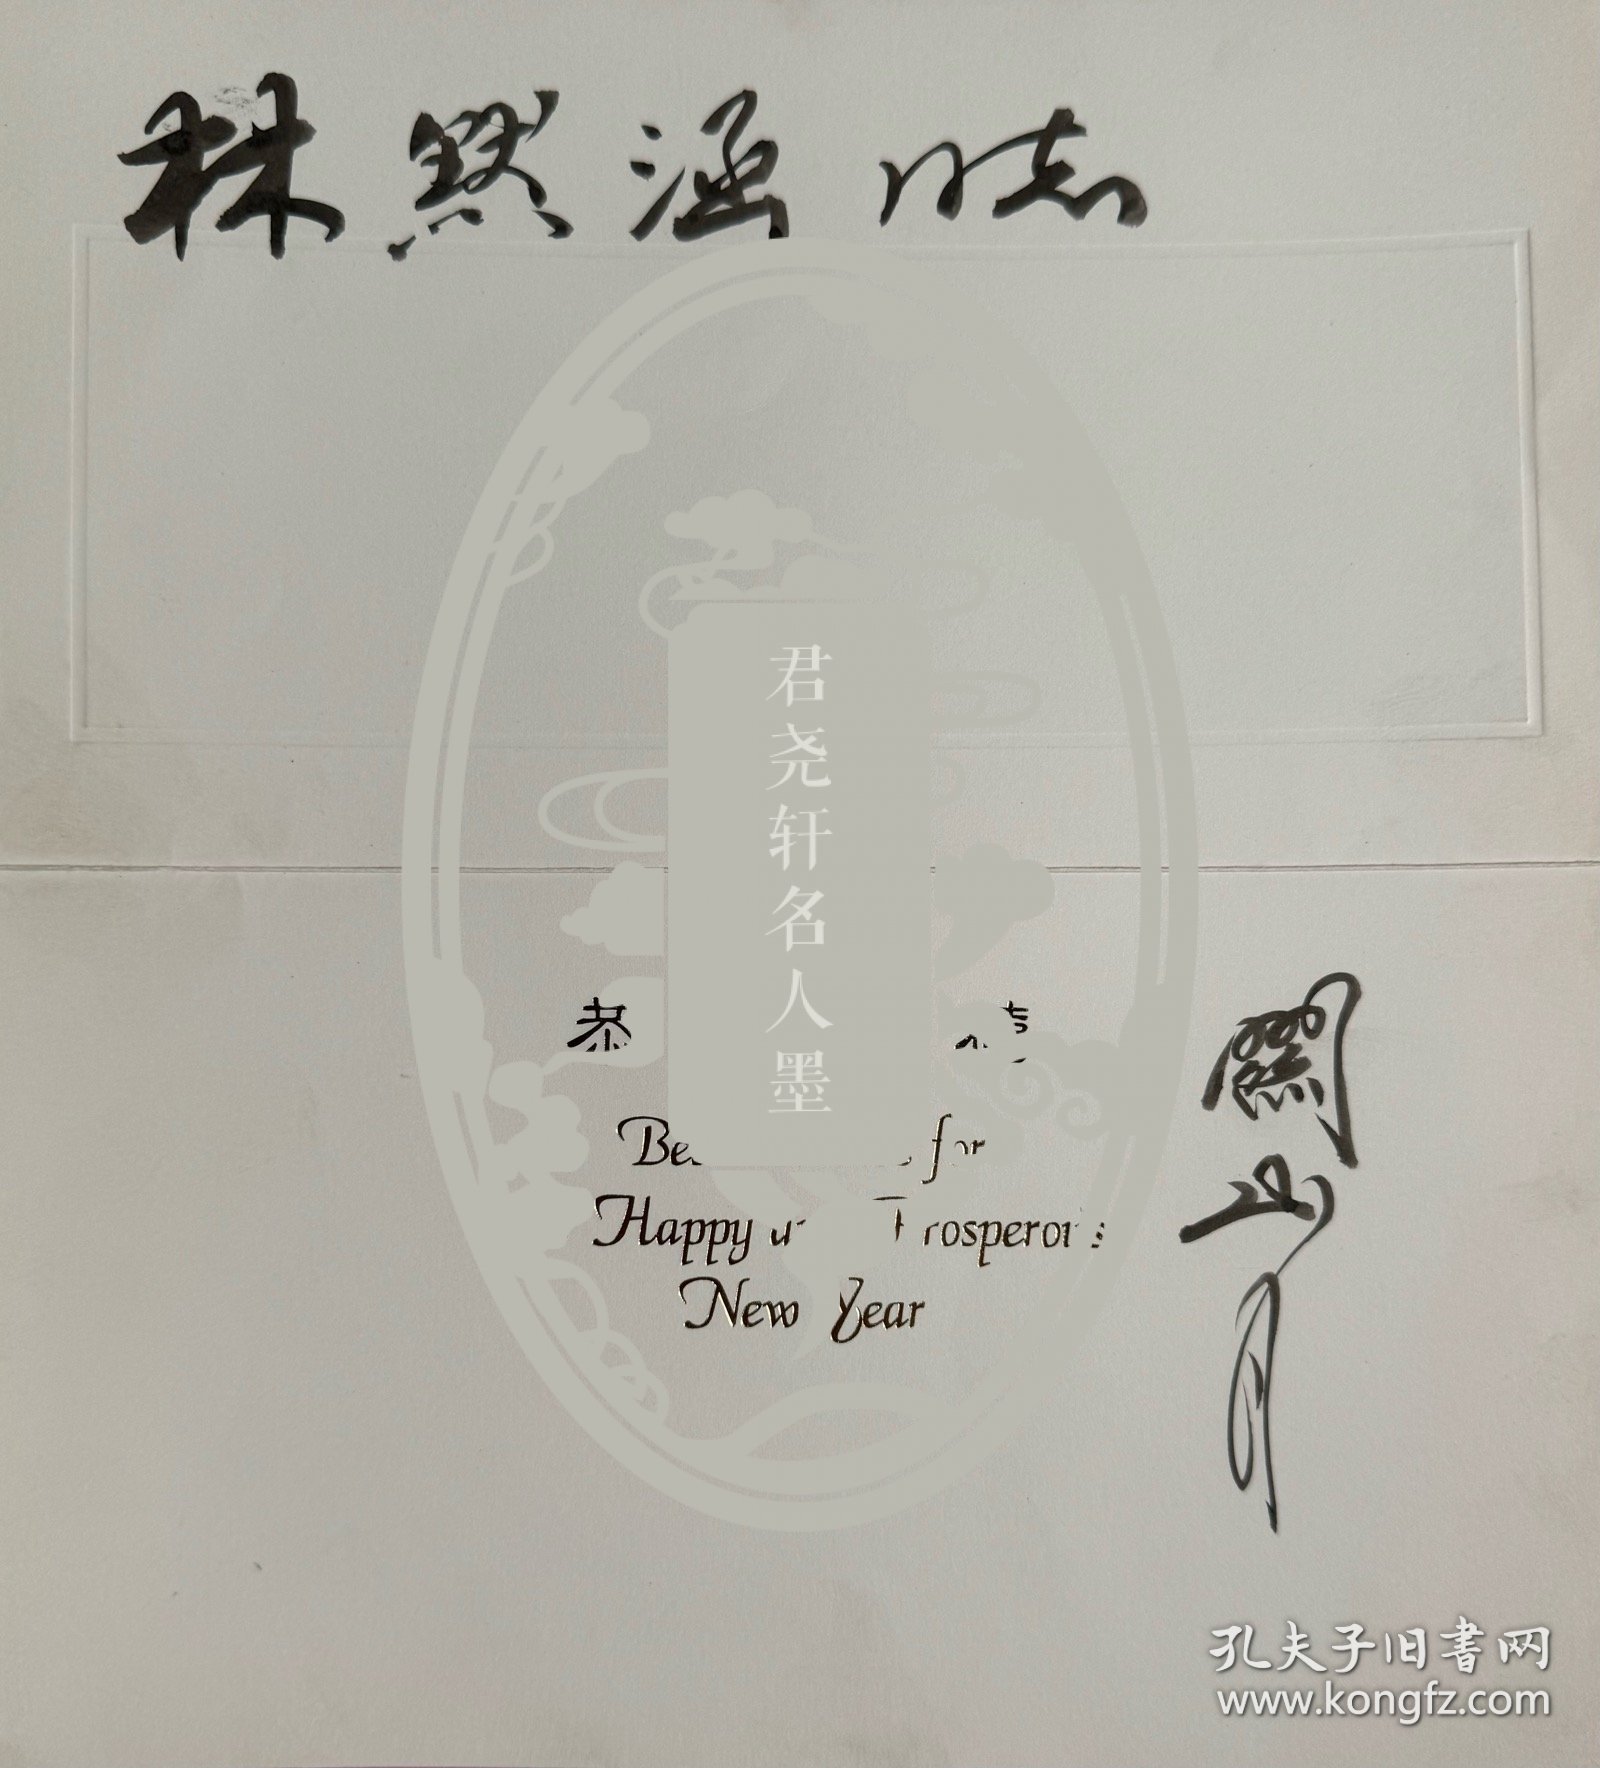 林默涵同志
君尧轩名人墨
恭
for
Happy
New Year
關山月
孔夫子旧書网
www.kongfz.com